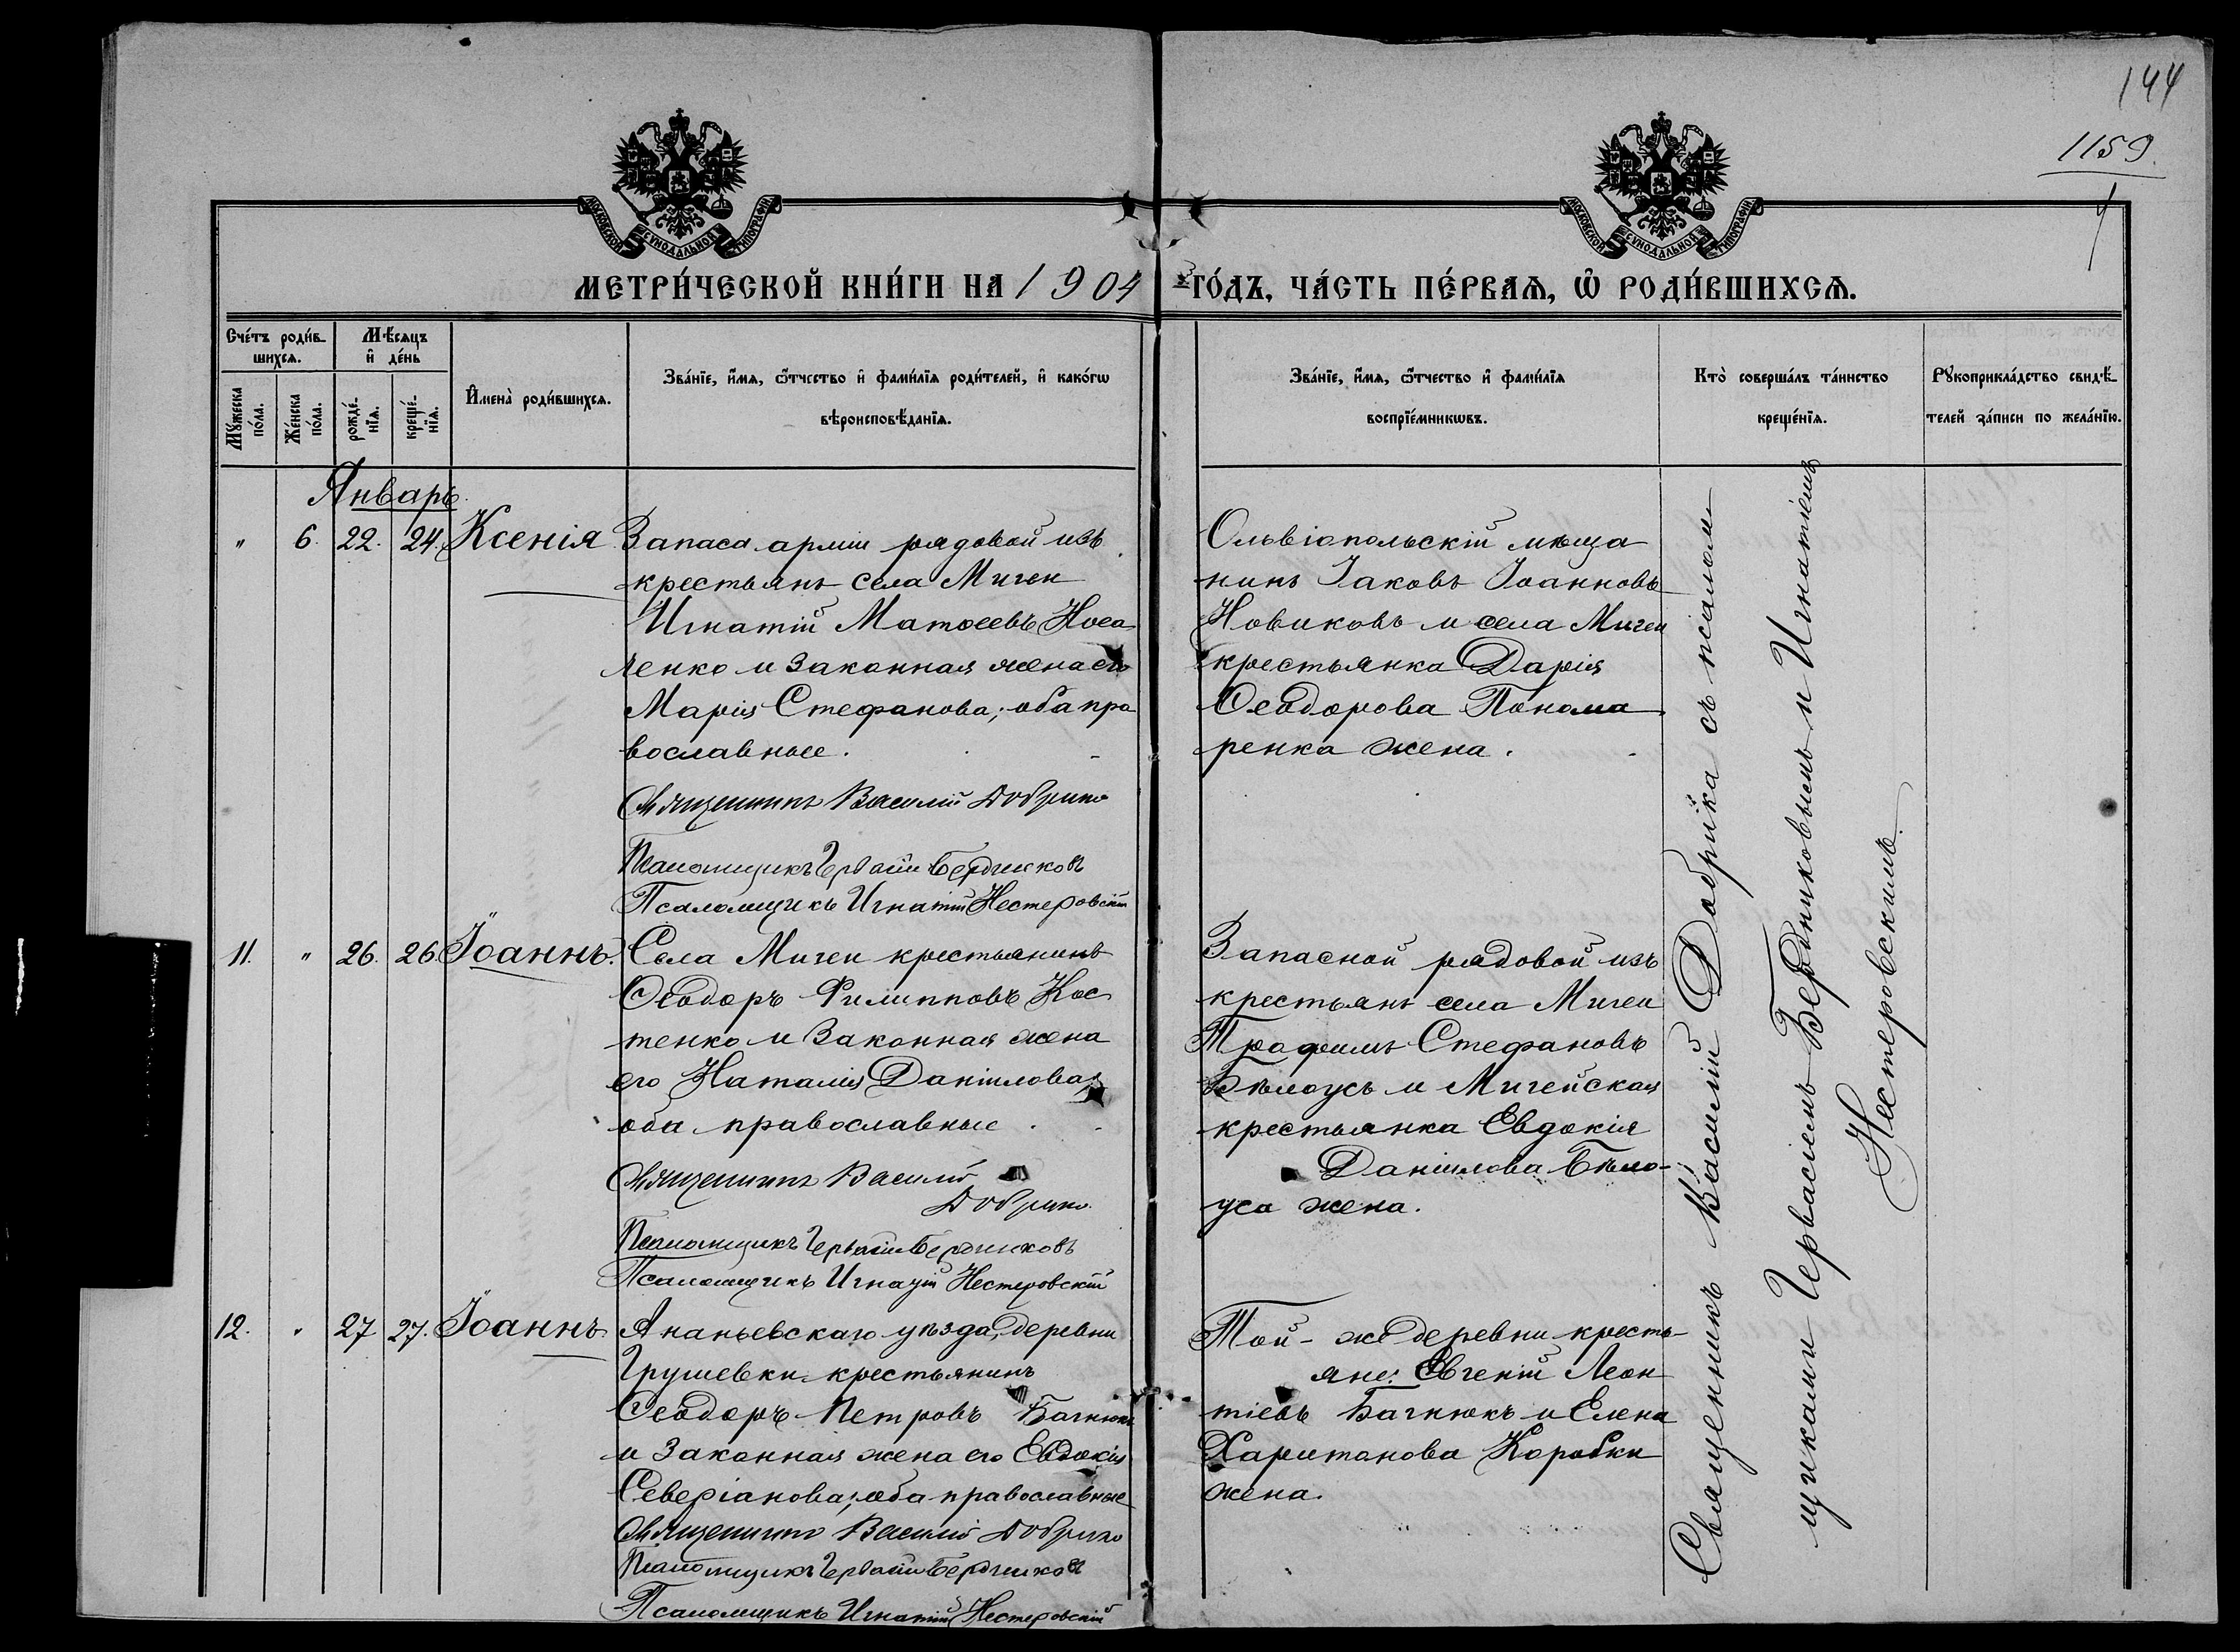 144
1159
МОСКОВСКОЙ СѴНОДАЛЬНОЙ ТИПОГРАФІИ
МОСКОВСКОЙ СѴНОДАЛЬНОЙ ТИПОГРАФІИ
МЕТРИ́ЧЕСКОЙ КНИ́ГИ НА 1904 ГО́ДЪ, ЧА́СТЬ ПЕ́РВАѦ, Ѡ҆ РОДИ́ВШИХСѦ.
Сче́тъ роди́в-
шихсѧ.
Мѣ́сѧцъ
и҆ де́нь
Мꙋ́жеска
по́ла.
Же́нска
по́ла.
рожде́-
нїѧ.
креще́-
нїѧ.
И҆мена̀ роди́вшихсѧ.
Зва́нїе, и҆́мѧ, ѻ҆́тчество и҆ фами́лїѧ роди́телей, и҆ како́гѡ
вѣроисповѣ́данїѧ.
Зва́нїе, и҆́мѧ, ѻ҆́тчество и҆ фами́лїѧ
воспрїе́мникѡвъ.
Кто̀ соверша́лъ та́инство
креще́нїѧ.
Рꙋкоприкла́дство свидѣ́-
телей за́писи по жела́нїю.
Январь.
" 6. 22. 24. Ксенія
Запаса арміи рядовой изъ
крестьянъ села Мигеи
Игнатій Матѳеевъ Носа
ченко и законная жена его
Марія Стефанова; оба пра
вославные.
Священникъ Василій Добрика
Псаломщикъ Гервасій Бердниковъ
Псаломщикъ Игнатій Нестеровскій
Ольвіопольскій мѣща
нинъ Іаковъ Іоанновъ
Новиковъ и села Мигеи
крестьянка Дарія
Ѳеодорова Понома
ренка жена.
11. " 26. 26. Іоаннъ.
Села Мигеи крестьянинъ
Ѳеодоръ Филипповъ Кос
тенко и законная жена
его Наталія Даніилова;
оба православные
Священникъ Василій
Добрика
Псаломщикъ Гервасій Бердниковъ
Псаломщикъ Игнатій Нестеровскій
Запасной рядовой изъ
крестьянъ села Мигеи
Трофимъ Стефановъ
Бѣлоусъ и Мигейская
крестьянка Евдокія
Даніилова Бѣло-
уса жена.
12. " 27 27. Іоаннъ
Ананьевскаго уѣзда, деревни
Грушевки крестьянинъ
Ѳеодоръ Петровъ Багнюкъ
и законная жена его Евдокія
Северіанова; оба православные
Священникъ Василій Добрика
Псаломщикъ Гервасій Бердниковъ
Псаломщикъ Игнатій Нестеровскій
Той-же деревни кресть-
яне: Евгеній Леон
тіевъ Багнюкъ и Елена
Харитонова Коробки
жена.
Священникъ Василій Добрика съ псалом-
щиками Гервасіемъ Бердниковымъ и Игнатіемъ
Нестеровскимъ.